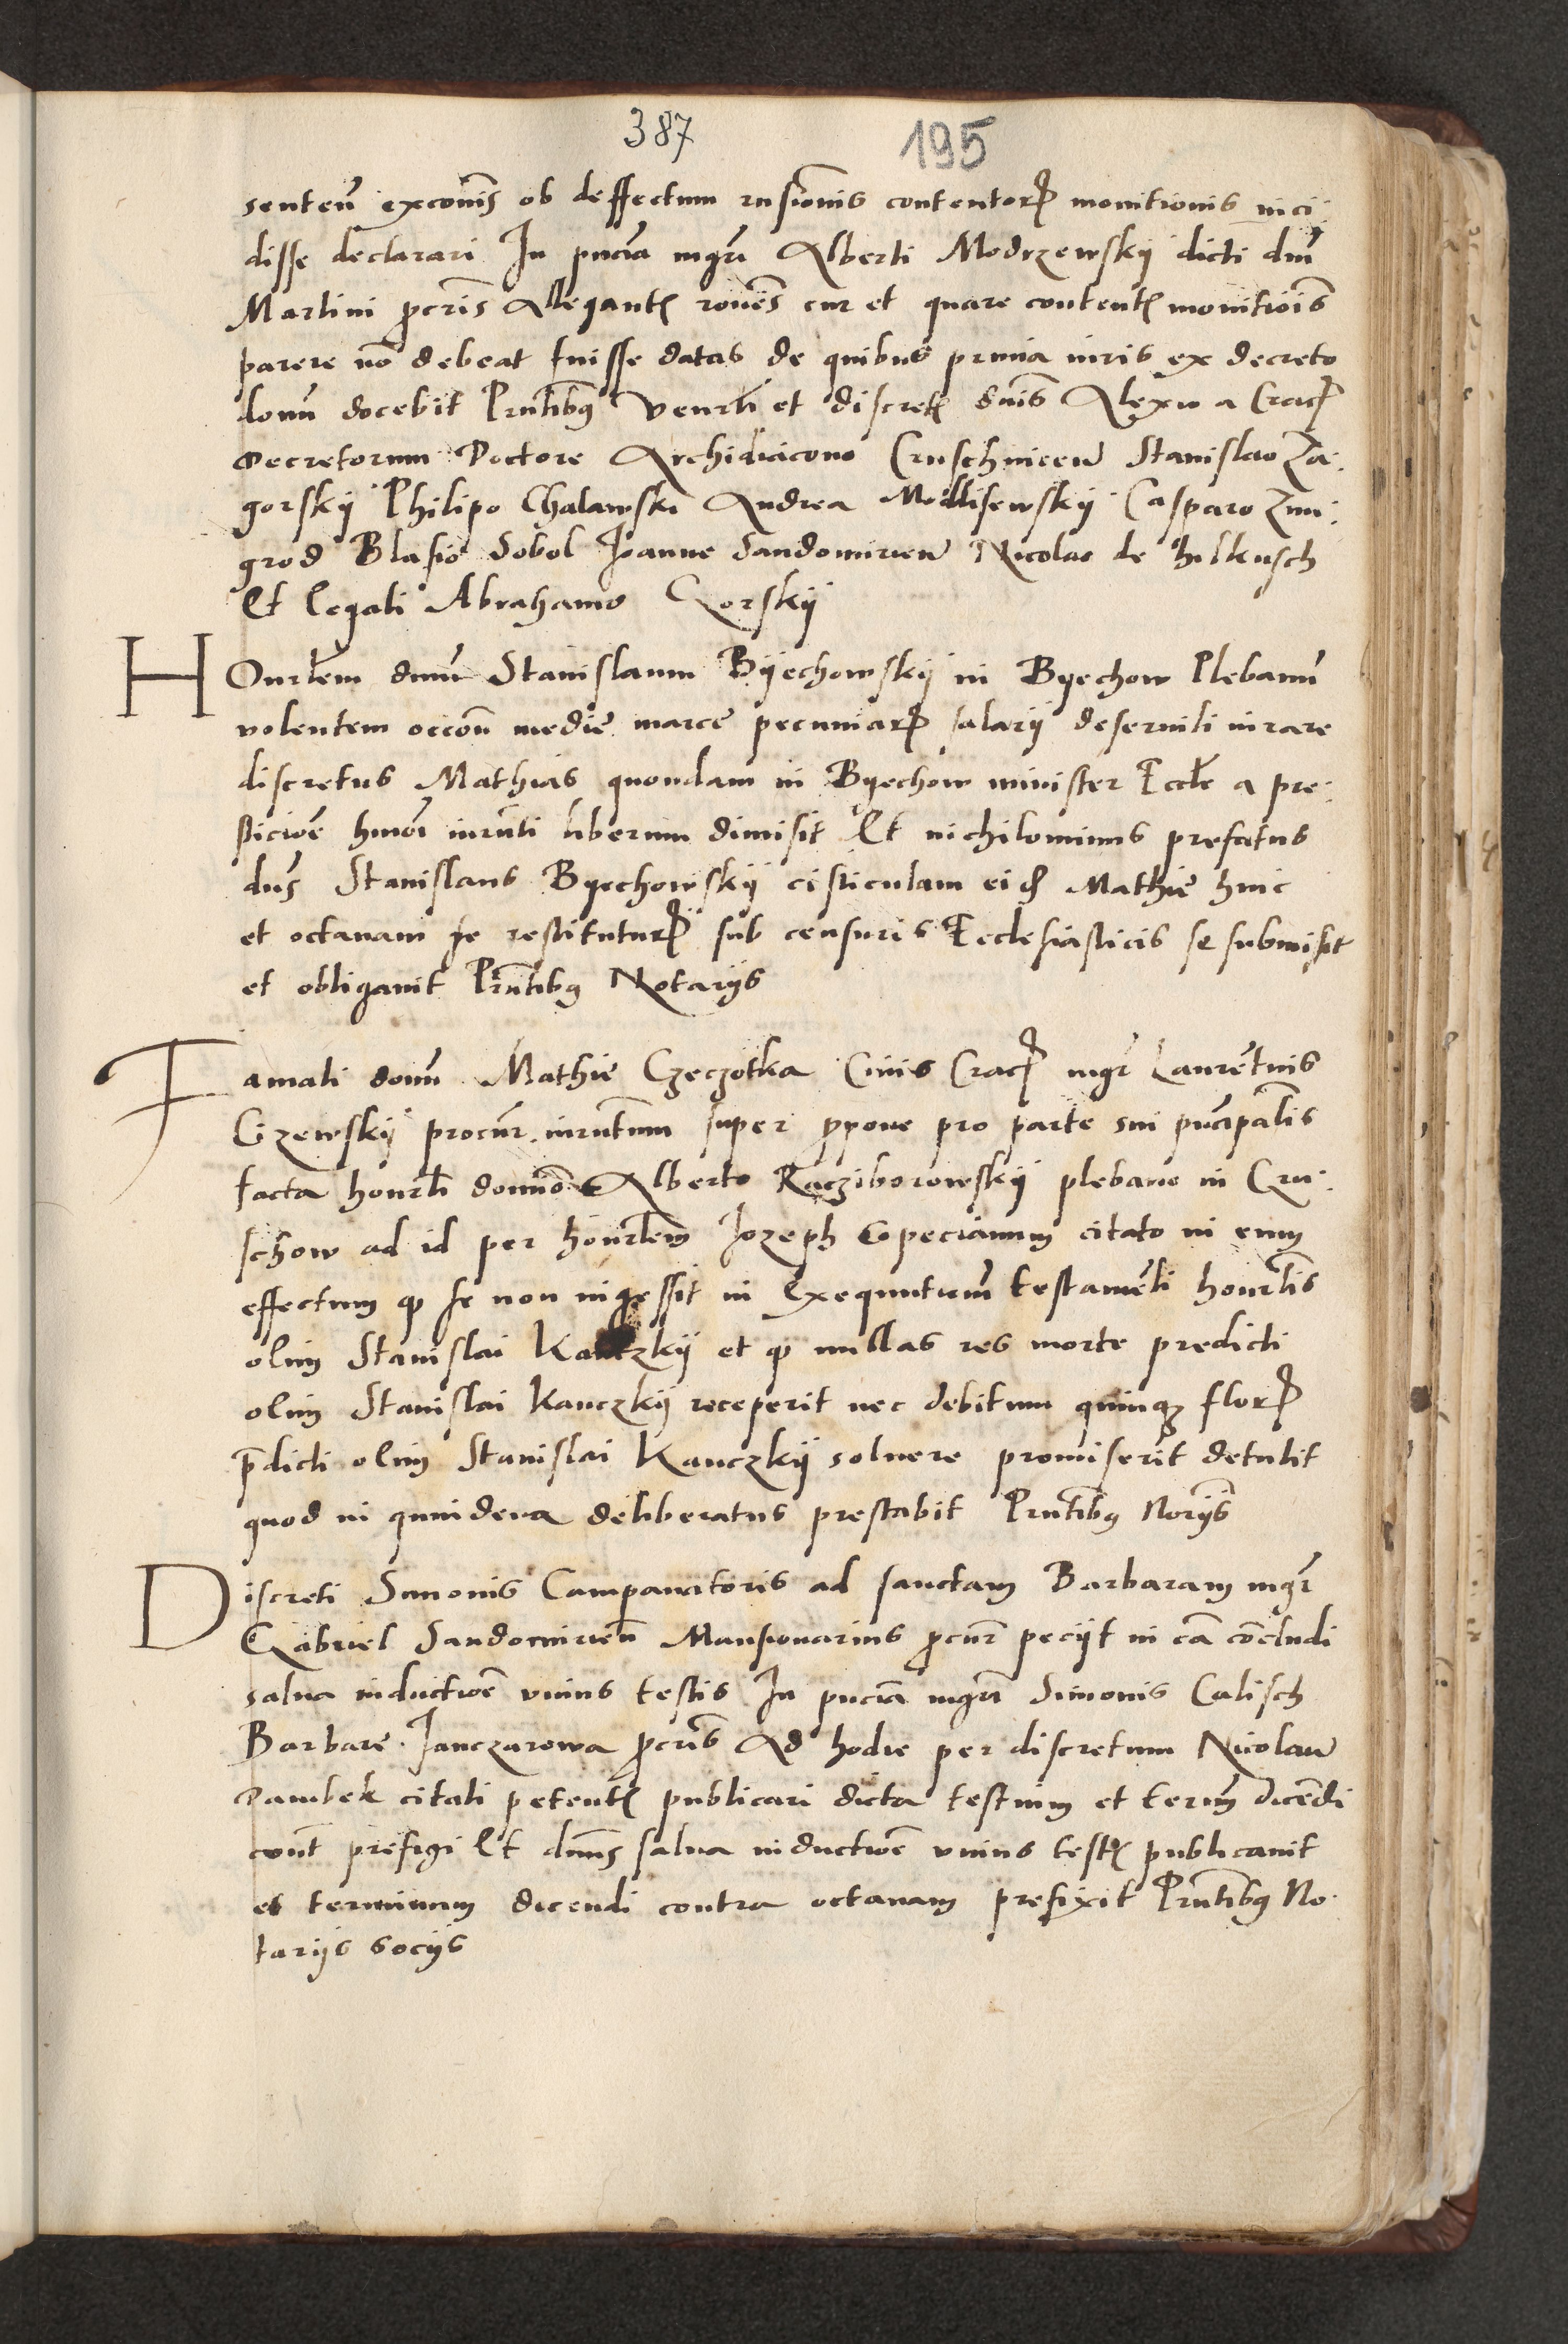 387 195
sentenͫ exconis ob deffectum rusionis contentorꝝ monitionis inci
disse declarari In pncia mgri Alberti Modrzewskÿ dicti dni
Martini ꝓcris Allegantꝭ rones cur et quare contentꝭ monitiois
parere no debeat fuisse datas de quibus primia iuris ex decreto
domi docebit Pntibꝰ Venrli et discretꝭ dnis Alexio a Cracꝝ
Decretorum Doctore Archidiacono Cruschwicen Stanislao Za
gorskÿ Philipo Chalawski Andrea Modlisewskÿ Casparo Zmi
grod Blasio Sobol Joanne Sandomirien Nicolao de hilkusch
Et legali Abrahamo Gorskÿ
HOnrlem dnm Stanislaum Bÿechowskÿ in Byechow Plebanu
volentem occone medie marce pecuniarꝝ salarÿ deserviti iurare
discretus Mathias quondam in Byechow minister Eccle a pre
sticioe hmoi iurnti liberum dimisit Et nichilominus prefatus
dns Stanislaus Byechowskÿ cisticulam eid Mathie huic
et octavam se restituturꝝ sub censuris Ecclesiasticis se submisit
et obligavit Pntibꝰ Notarÿs
Famati domi Mathie Czeczotka Civis Cracꝝ mgr Laurentius
Cizewskÿ procur iurntum super ꝓpone pro parte sui pncipalis
facta honrli domino Alberto Racziborowskÿ plebano in Cru
schow ad id per honrlem Jozeph Copecianum citato in eum
effectum ꝙ se non ingessit in Exequutum testamenti honrlis
olim Stanislai Kauczkÿ et ꝙ nullas res morte predicti
olim Stanislai Kauczkÿ receperit nec debitum quinqꝫ florꝝ
p̄dicti olim Stanislai Kauczkÿ solvere promiserit detulit
quod in quindena deliberatus prestabit Pntibꝰ Norÿs
Discreti Simonis Campanatoris ad sanctam Barbaram mgr
Gabriel Sandomirien Mansionarius ꝓcur peciit in ca concludi
salva inductioe unius testis In pncia mgri Simonis Calisch
Barbare Janczarowa ꝓcris Ad hodie per discretum Nicolau
Dambek citati petentꝭ publicari dicta testium et termi dicendi
cont prefigi Et dnus salva inductioe unius testꝭ publicavit
et terminum dicendi contra octavam prefixit Pntibꝰ No
tarÿs socÿs